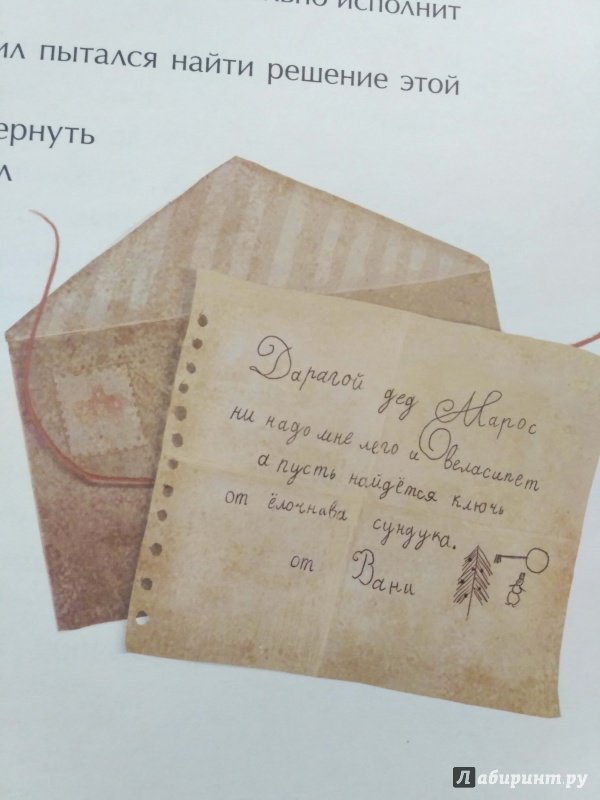 исполнит
ил пытался найти решение этой
ернуть
л
Дарагой дед Марос
ни надо мне лего и веласипет
а пусть найдётся ключь
от ёлочнава сундука.
от Вани
Лабиринт.ру